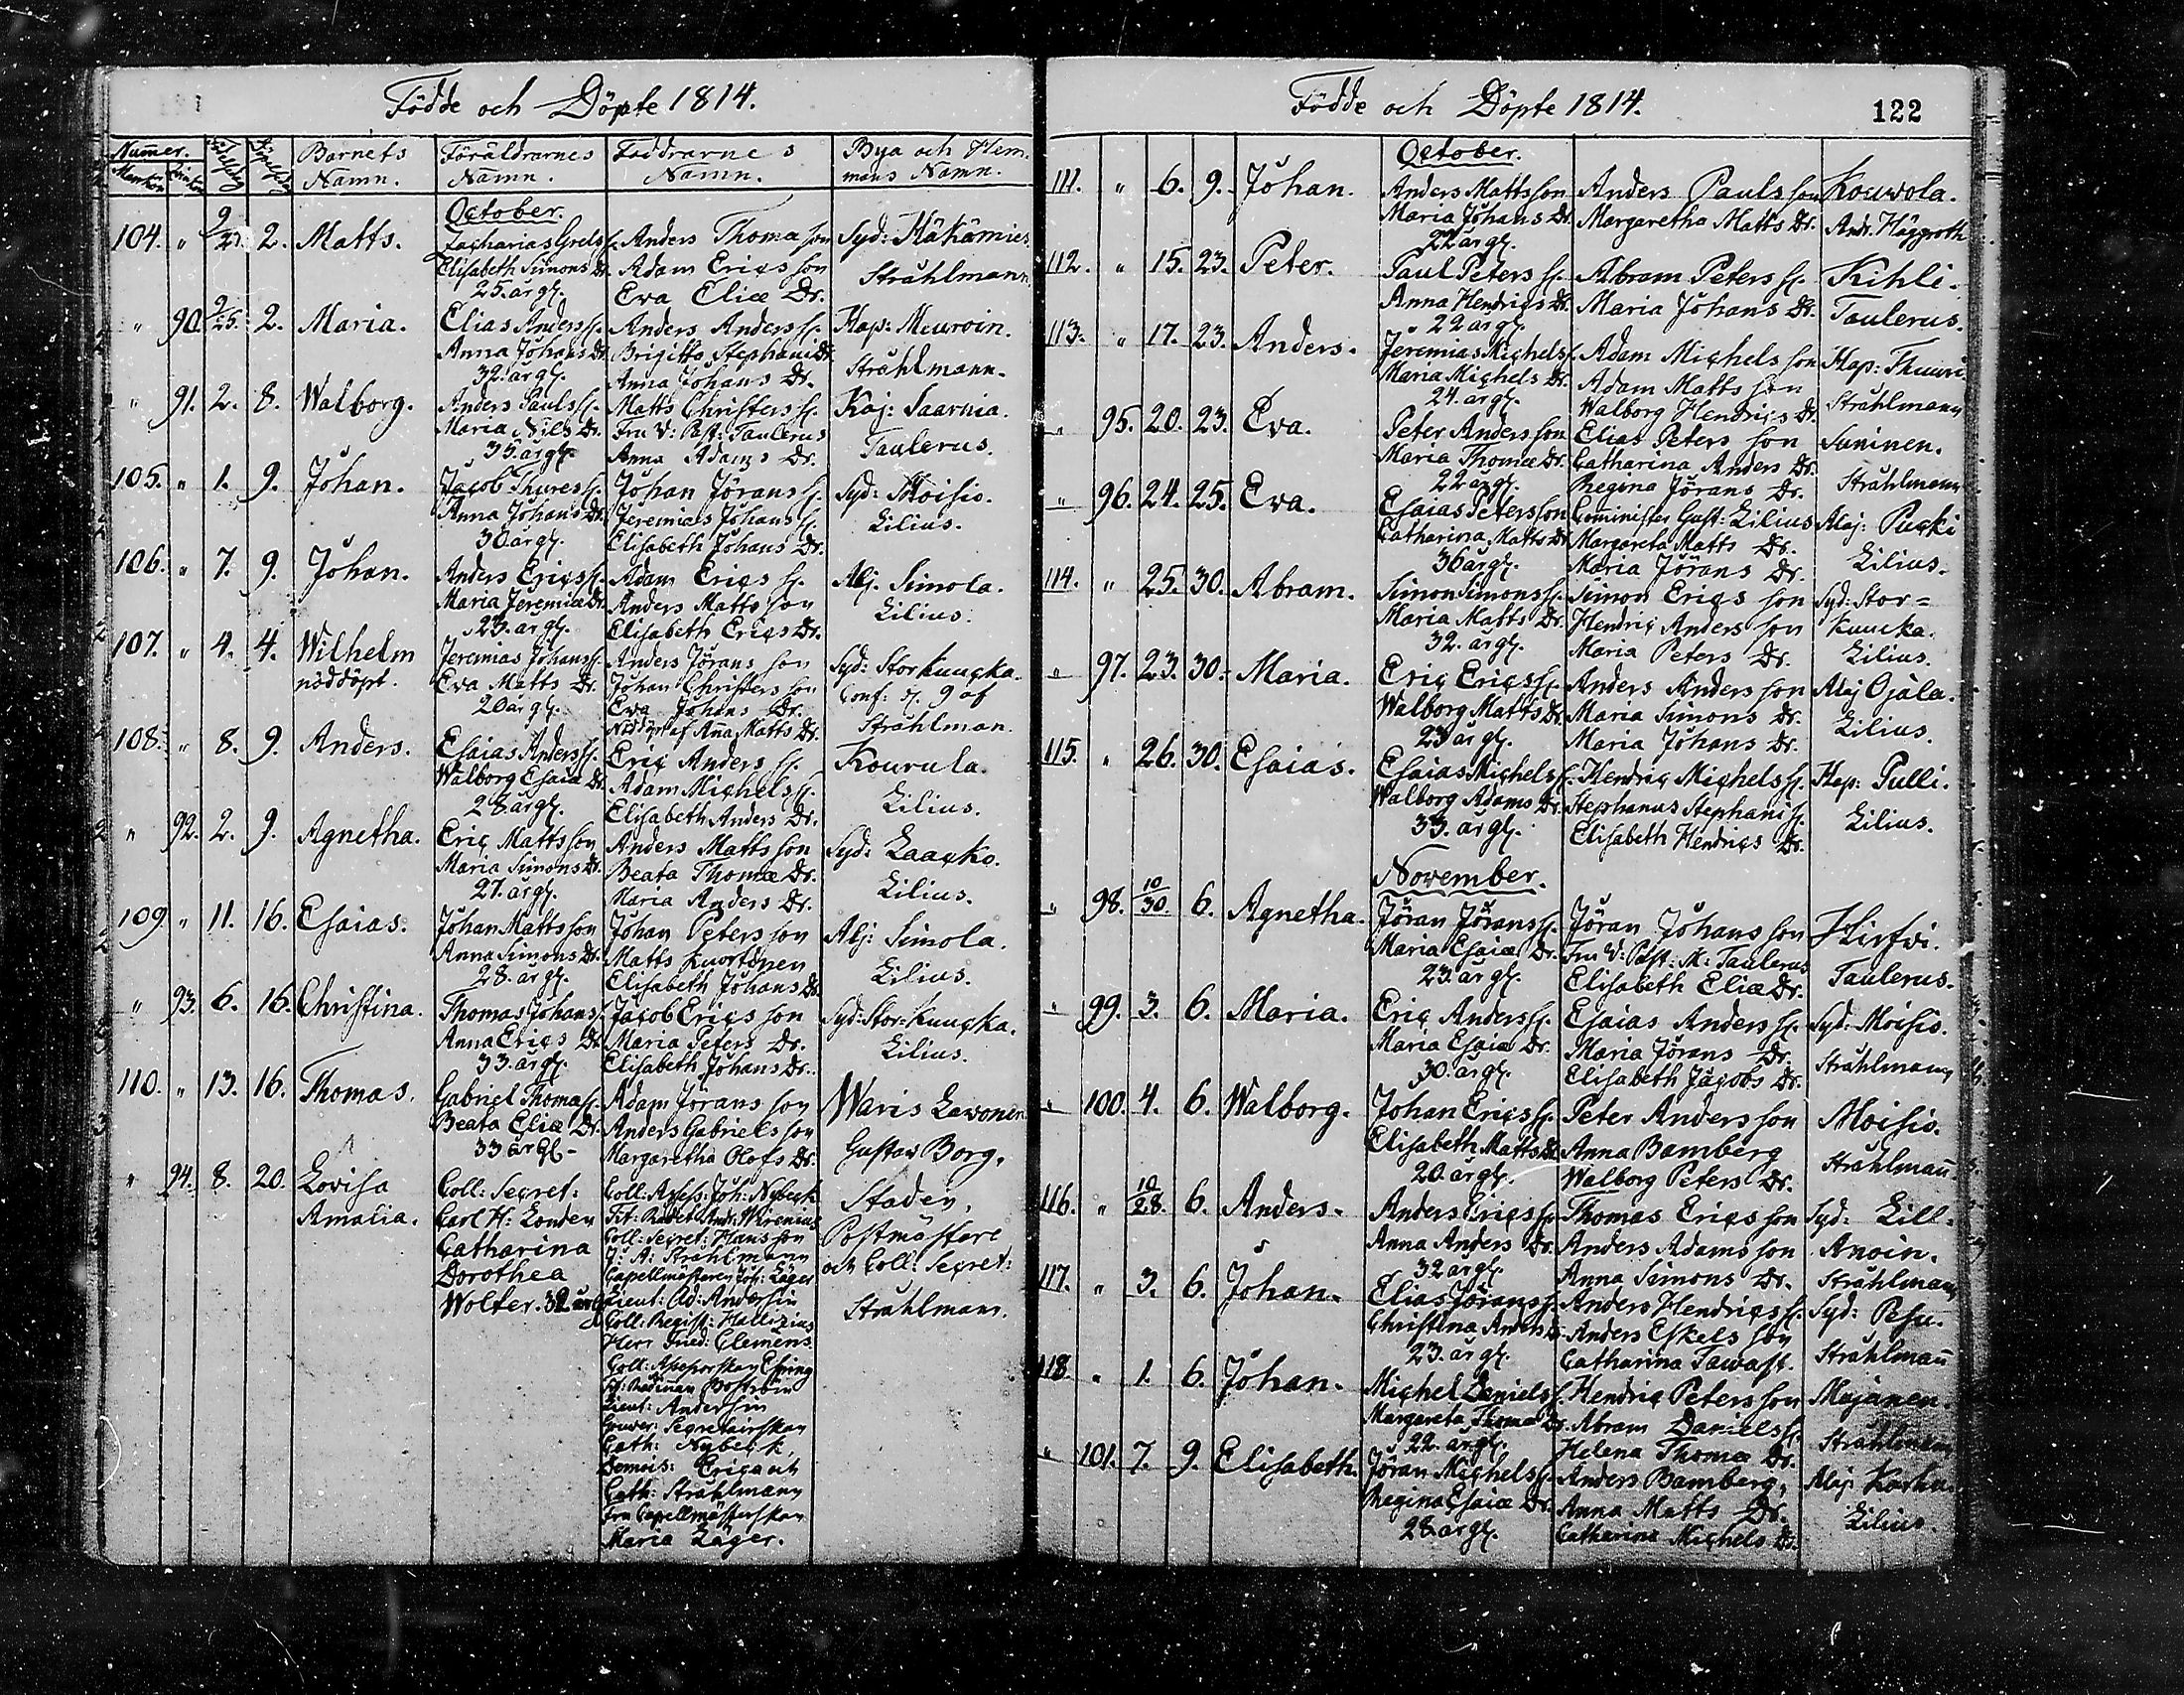 Födde och Döpte 1814.
Numer.
Mankön
Barnets
Namn.
Föräldrarnes
Namn.
Faddrarnes
Namn.
Bya och Hem-
mans Namn.
October.
104. " 9/27. 2. Matts. Zacharias Grels s. Anders Thomasson Syd: Häkämies
Elisabeth Simons Dr. Adam Erics son Stråhlmann
25. år gl. Eva Eliæ Dr.
" 90. 9/25. 2. Maria. Elias Anders s. Anders Anders s. Hap: Meuroin.
Anna Johans Dr. Brigitta Stephani Dr. Stråhlmann.
32. år gl. Anna Johans Dr.
" 91. 2. 8. Walborg. Anders Pauls s. Matts Christers s. Kaj: Saarnia.
Maria Nils Dr. Fru V: Past: Taulerus Taulerus.
35. år gl. Anna Adams Dr.
105. " 1. 9. Johan. Jacob Thures s. Johan Jörans s. Syd: Moisio.
Anna Johans Dr. Jeremias Johans s. Lilius.
30. år gl. Elisabeth Johans Dr.
106. " 7. 9. Johan. Anders Erics s. Adam Erics s. Alj. Simola.
Maria Jeremiæ Dr. Anders Matts son Lilius.
23. år gl. Elisabeth Erics Dr.
107. " 4. 4. Wilhelm Jeremias Johans s. Anders Jörans son Syd: Storkuucka.
nöddöpt. Eva Matts Dr. Johan Christers son Conf: d. 9 af
20 år gl. Eva Johans Dr. Stråhlman.
Nöddöpt af Aña Matts Dr.
108. " 8. 9. Anders. Esaias Anders s. Eric Anders s. Kourula.
Walborg Esaiæ Dr. Adam Michels s. Lilius.
28 år gl. Elisabeth Anders Dr.
" 92. 2. 9. Agnetha. Eric Matts son Anders Matts son Syd: Laacko.
Maria Simons Dr. Beata Thomæ Dr. Lilius.
27. år gl. Maria Anders Dr.
109. " 11. 16. Esaias. Johan Matts son Johan Peters son Alj: Simola.
Anna Simons Dr. Matts Kuortonen Lilius.
28. år gl. Elisabeth Johans Dr.
" 93. 6. 16. Christina. Thomas Johans s. Jacob Erics son Syd: Stor-Kuucka.
Anna Erics Dr. Maria Peters Dr. Lilius.
33. år gl. Elisabeth Johans Dr.
110. " 13. 16. Thomas. Gabriel Thomas s. Adam Jörans son Waris Lavonen
Beata Eliæ Dr. Anders Gabriels son Gustav Borg.
33 år gl. Margaretha Olofs Dr.
" 94. 8. 20. Lovisa Coll: Secret: Coll: Assess: Joh: Nybeck Staden,
Amalia. Carl H: Londen Tit: Rådet And: Wirenius Postmästare
Catharina Coll: Secret: Hansson och Coll: Secret:
Dorothea J: A: Stråhlmann Stråhlmann.
Wolter. 32 år gl. Capellmästaren Joh: Läger
Lieut: Ad: Andersin
Coll: Regist: Hallizius
Herr Fried: Clemens
Coll: Assessorskan Essing
Tit: Rådinan Boström
Lieut: Andersin
Gouver: Secretairskan
Cath: Nybeck,
Demois: Erica och
Cath: Stråhlmann
Fru Capellmästerskan
Maria Läger.
Födde och Döpte 1814. 122
October.
111. " 6. 9. Johan. Anders Matts son Anders Pauls son Kouvola.
Maria Johans Dr. Margaretha Matts Dr. Andr. Häggroth
22 år gl.
112. " 15. 23. Peter. Paul Peters s. Abram Peters s. Kihli.
Anna Hendrics Dr. Maria Johans Dr. Taulerus.
22 år gl.
113. " 17. 23. Anders. Jeremias Michels s. Adam Michels son Hap: Thuuri.
Maria Michels Dr. Adam Matts son Stråhlmann
24. år gl. Walborg Hendrics Dr.
" 95. 20. 23. Eva. Peter Anders son Elias Peters son Suninen.
Maria Thomæ Dr. Catharina Anders Dr. Stråhlmann
22 år gl. Regina Jörans Dr.
" 96. 24. 25. Eva. Esaias Peters son Cominister Gust: Lilius Alaj: Pucki
Catharina Matts Dr. Margareta Matts Dr. Lilius.
36 år gl. Maria Jörans Dr.
114. " 25. 30. Abram. Simon Simons s. Simon Erics son Syd: Stor=
Maria Matts Dr. Hendric Anders son kuucka.
32. år gl. Maria Peters Dr. Lilius.
" 97. 23. 30. Maria. Eric Erics s. Anders Anders son Alaj Ojala.
Walborg Matts Dr. Maria Simons Dr. Lilius.
23 år gl. Maria Johans Dr.
115. " 26. 30. Esaias. Esaias Michels s. Hendric Michels s. Hap: Pulli.
Walborg Adams Dr. Stephanus Stephani s. Lilius.
33. år gl. Elisabeth Hendrics Dr.
November.
" 98. 10/30. 6. Agnetha. Jöran Jörans s. Jöran Johans son Hirfvi.
Maria Esaiæ Dr. Fru V: Past: M: Taulerus Taulerus.
23. år gl. Elisabeth Eliæ Dr.
" 99. 3. 6. Maria. Eric Anders s. Esaias Anders s. Syd: Moisio.
Maria Esaiæ Dr. Maria Jörans Dr. Stråhlmann
30. år gl. Elisabeth Jacobs Dr.
" 100. 4. 6. Walborg. Johan Erics s. Peter Anders son Moisio.
Elisabeth Matts Dr. Anna Bamberg Stråhlmañ.
20. år gl. Walborg Peters Dr.
116. " 10/28. 6. Anders. Anders Erics s. Thomas Erics son Syd: Lill-
Anna Anders Dr. Anders Adams son Anoin.
32 år gl. Anna Simons Dr. Stråhlmann
117. " 3. 6. Johan. Elias Jörans s. Anders Hendrics s. Syd: Pesu.
Christina Anders Dr. Anders Eskels son Stråhlmañ
23. år gl. Catharina Tawast.
118. " 1. 6. Johan. Michel Daniels s. Hendric Peters son Mujanen.
Margareta Thomæ Dr. Abram Daniels s. Stråhlmann
22. år gl. Helena Thomæ Dr.
" 101. 7. 9. Elisabeth. Jöran Michels s. Anders Bamberg, Alaj. Korha.
Regina Esaiæ Dr. Anna Matts Dr. Lilius.
28 år gl. Catharina Michels Dr.